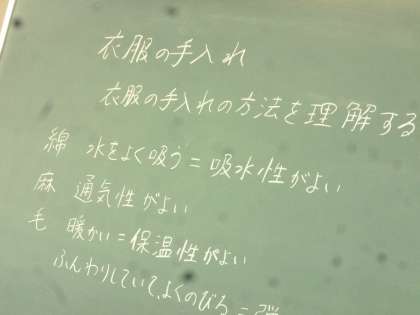 衣服の手入れ
衣服の手入れの方法を理解する
綿 水をよく吸う=吸水性がよい
麻 通気性がよい
毛 暖かい=保温性がよい
ふんわりしていて、よくのびる=